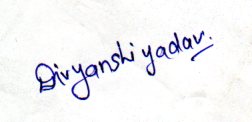 Divyanshi yadav.